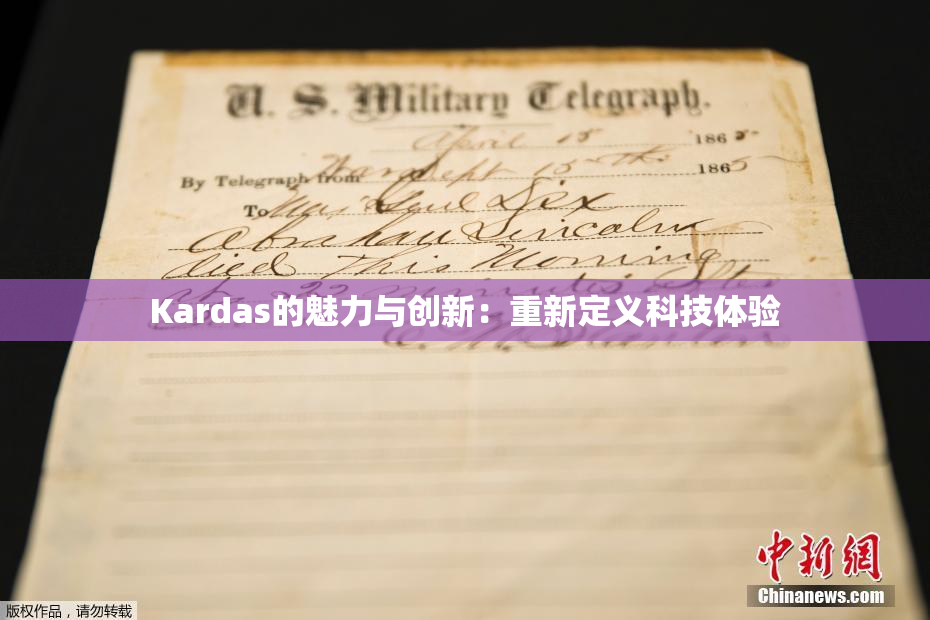 U. S. Military Telegraph.
April 15 1865
By Telegraph from War Dept 15th 1865
To Maj Genl Dix
Abraham Lincoln
died This Morning
at 22 minutes after
Kardas的魅力与创新：重新定义科技体验
E. M. Stanton
中新网
Chinanews.com
版权作品，请勿转载